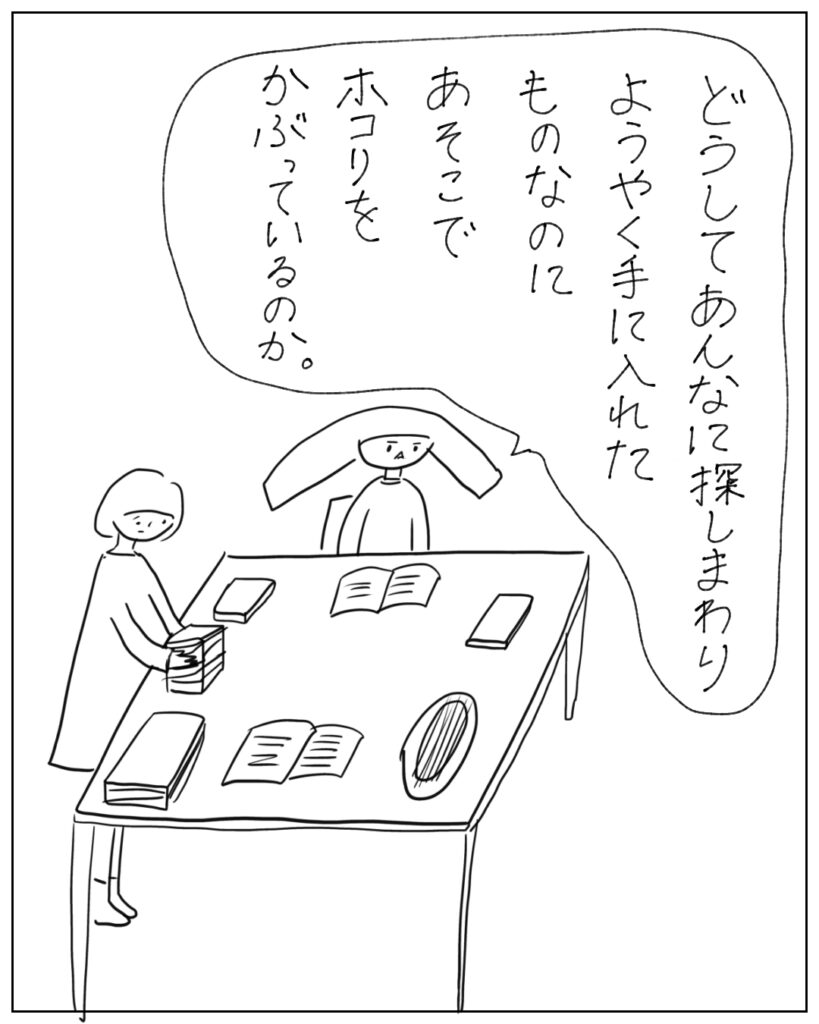 どうしてあんなに探しまわり
ようやく手に入れた
ものなのに
あそこで
ホコリを
かぶっているのか。